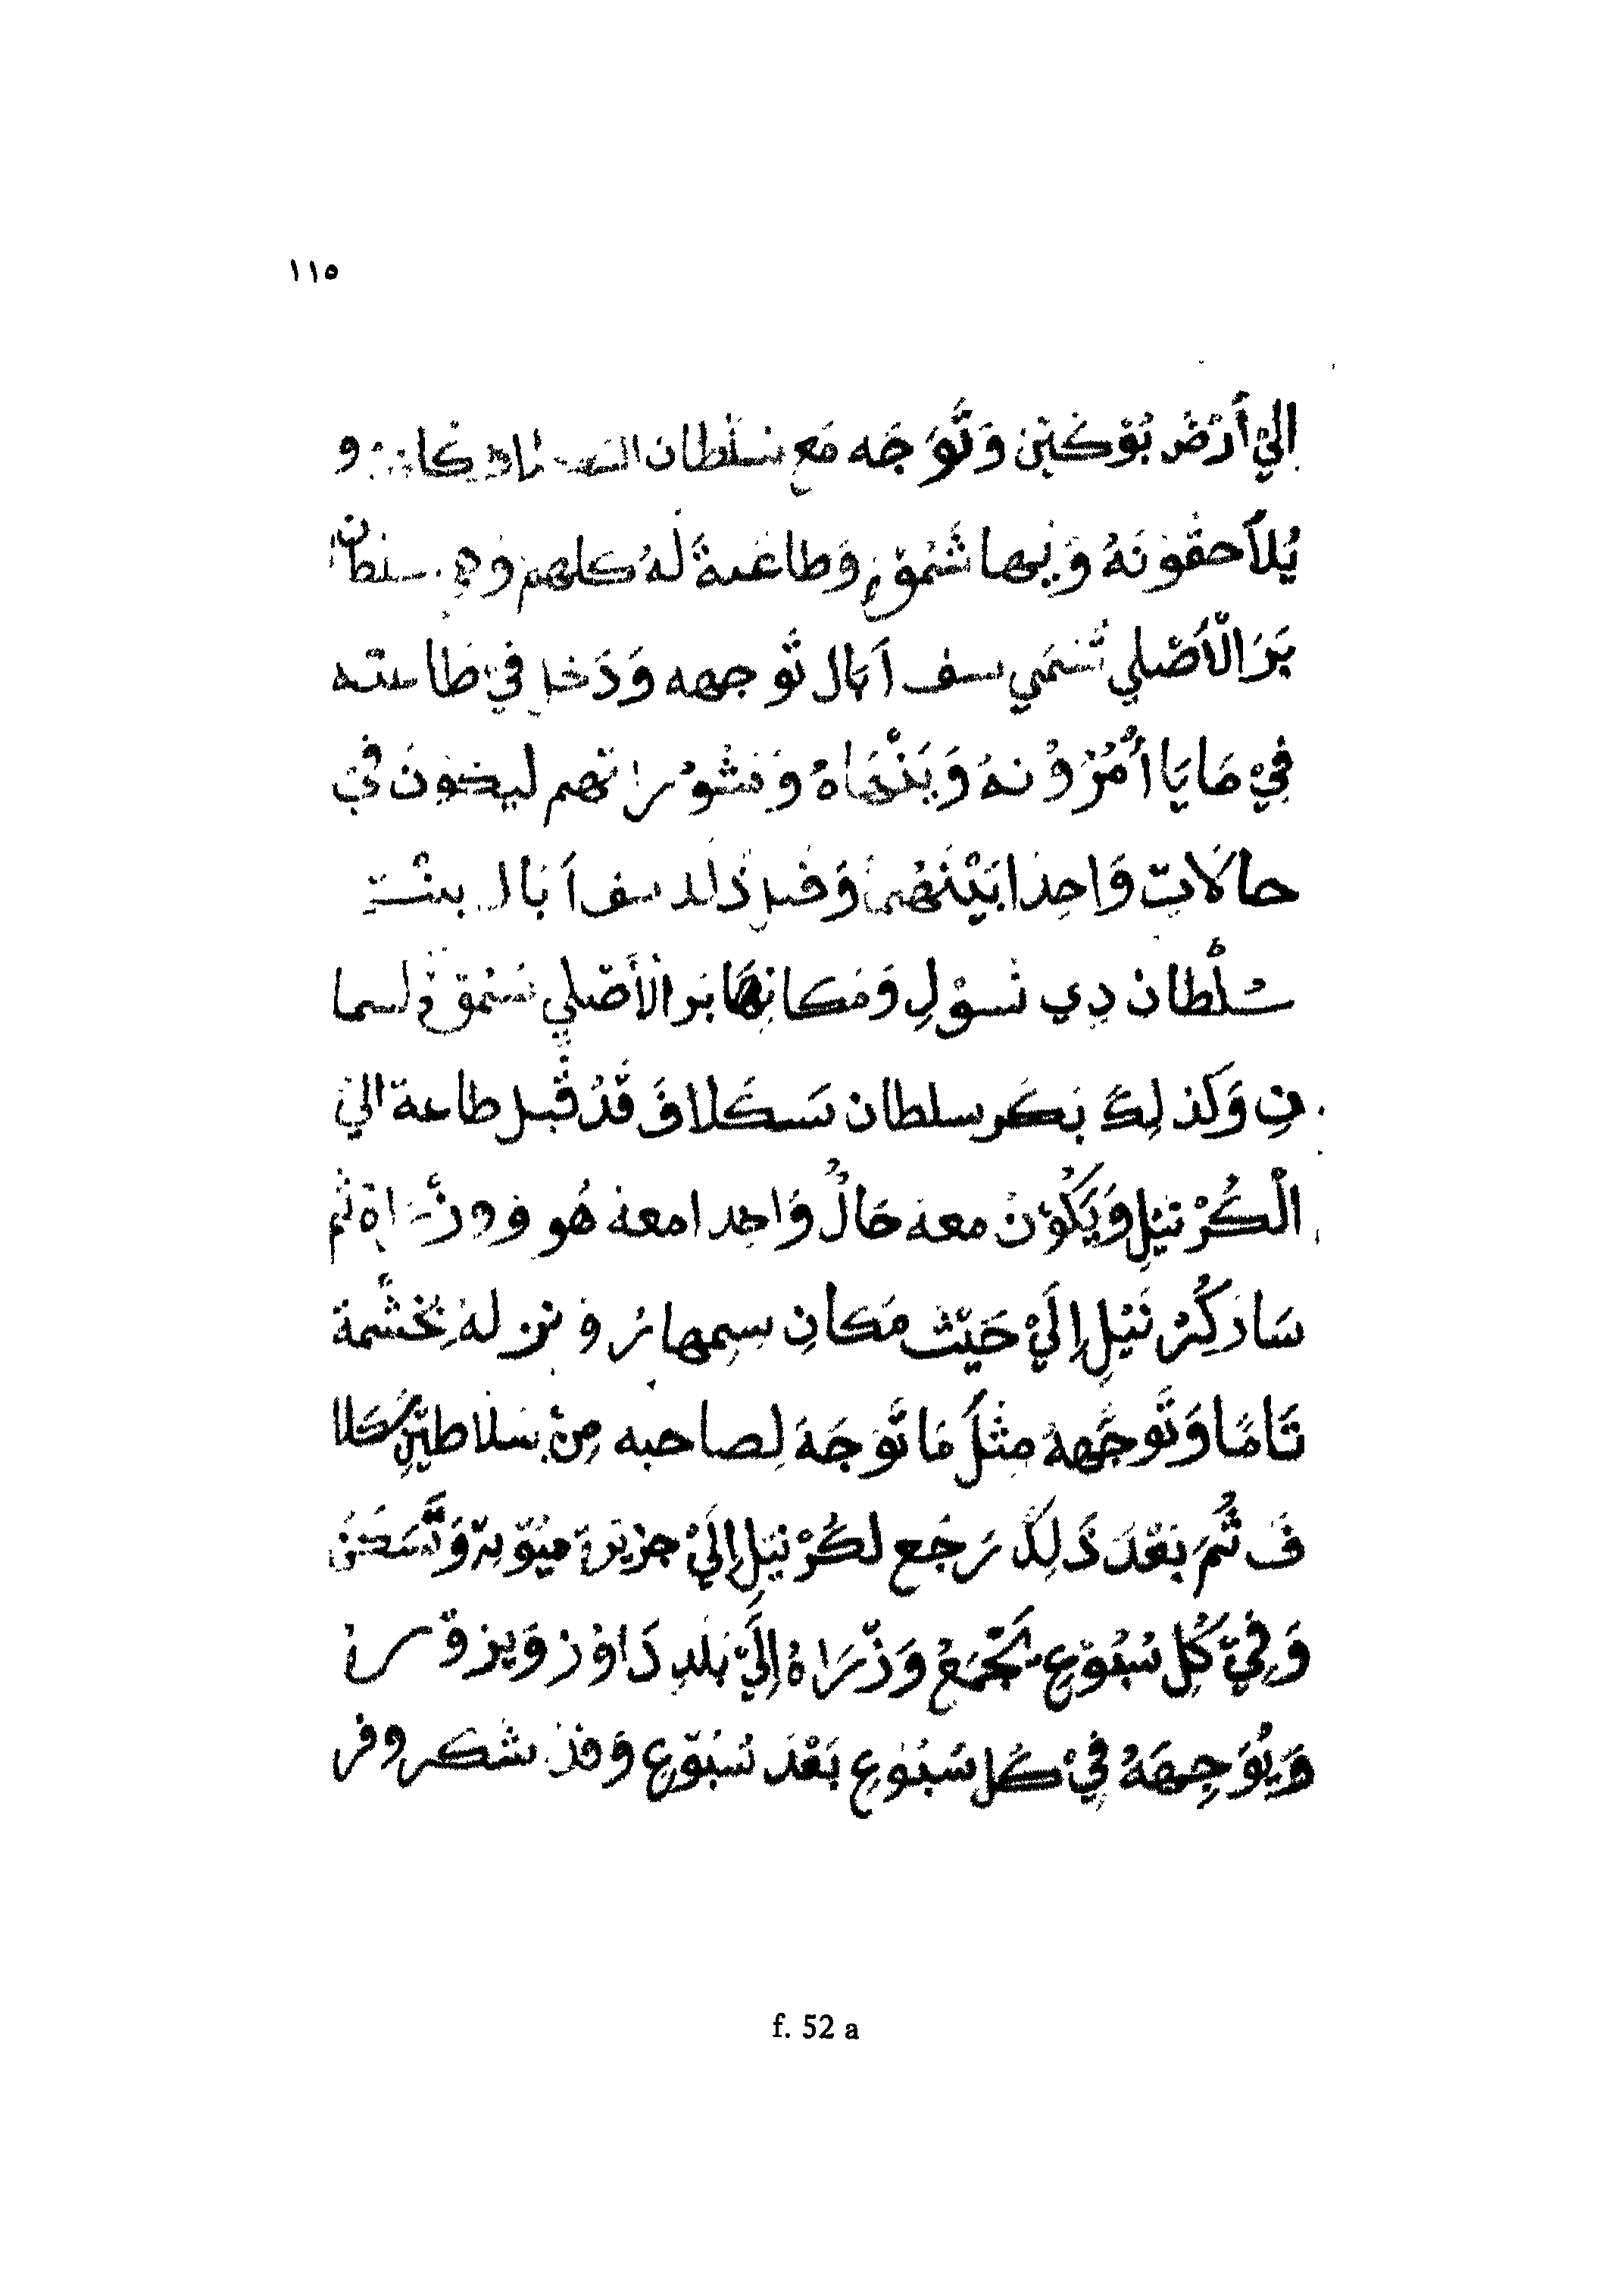 ١١٥
اِلَيْ أَرْضِ بُوْكَبْنِ وَتَّوَجَه مَعَ سُلْطَان و
يُلَاحقُوْنَهُ وَ وَطاعَةً لَهُ كلهم سلطان
بَرَ الْأَصْلي تُسَمَي سف اَبَال تَوجهه وَدَخل فِي طَاعته
فِيْ مَا يَا أُمُرُوْنَهُ وَيَنْهَاهُ وَ ليكوْنَ فِيْ
حالَاتِ وَاحِدَا بَيْنَهُمَا وَقبل ذَلك سف اَبَال بِنْت
سُلْطان دِي سُوْلِ وَمَكانِهَا بَر الْأَصْلي
نِ وَكَذلِكَ بَكَر سلطان سَكَلافَ قَدْ قَبل طاعة اليْ
الْكُرْنَيْلِ وَيَكُوْنُ معه حَالُ وَاحِدا معه هُو و وزَرَاهُ ثُم
سَارَ كُرْنَيْلِ اِلَيْ حَيْثُ مَكانِ سِمهارُ وَنزل لهُ بِحَشْمَة
تَامًا وَتَّوجَّههُ مِثْلَ مَا تَّوَجَهَ لِصاحبه مِنْ سَلاطَيْنِ سَكَلا
فَ ثُمَ بَعْدَ ذَلِكَ رَجَع لكُرْنَيْلِ اِلَيْ جزِيْرَةِ مَيُوْتِةْ وَتَّسَكَنَ
وَفِيْ كُلِ سُبُوْعِ يَجْتَمَعُ وَزَرَاهُ اِلَيْ بَلَدِ دَاوُزِ
وَيُوَجِهَهُ فِيْ كُل سُبُوْعِ بَعْدَ سُبُوْعِ وَقدْ شكروفر
f. 52 a